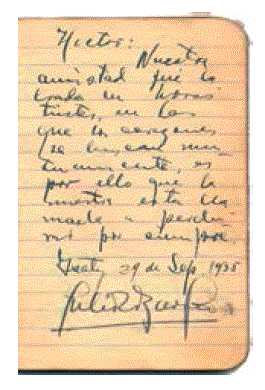 Hector:
Nuestra
amistad que la
en horas
tristes, en las
que los corazones
se buscan mu-
tuamente, es
por ello que la
nuestra está lla-
mada a perdu-
rar por siempre.
29 de Sep. 1935